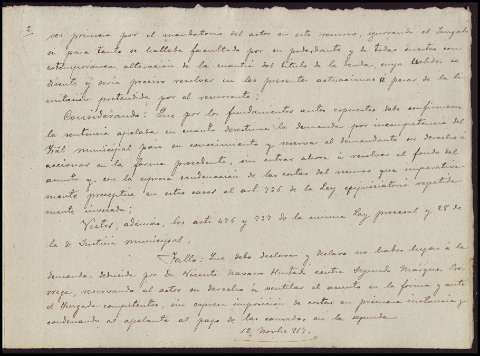 2.
vez primera por el mandatario del actor en este recurso, ignorando el Juzgado
si para tanto se hallaba facultado por su poderdante y de todas suertes con
extemporánea alteración de la cuantía del título de la deuda cuya validez se
discute y sería preciso resolver en las presentes actuaciones a pesar de la li-
mitación pretendida por el recurrente;
Considerando: Que por los fundamentos antes expuestos debe confirmarse
la sentencia apelada en cuanto desestima la demanda por incompetencia del
Tbal municipal para su conocimiento y reserva al demandante su derecho a
accionar en la forma procedente, sin entrar ahora a resolver el fondo del
asunto y con la expresa condenación de las costas del recurso que imperativa-
mente preceptúa en estos casos el art 736 de la Ley enjuiciatoria repetida-
mente invocada;
Vistos, además, los arts 496 y 737 de la misma Ley procesal y 25 de
la de Justicia municipal,
Fallo: Que debo declarar y declaro no haber lugar a la
demanda deducida por Dn Vicente Navarro Hurtado contra Segundo Marque
reservando al actor su derecho a ventilar el asunto en la forma y ante
el Juzgado competentes, sin expresa imposición de costas en primera instancia y
condenando al apelante al pago de las causadas en la segunda.
12 Novbre 217.